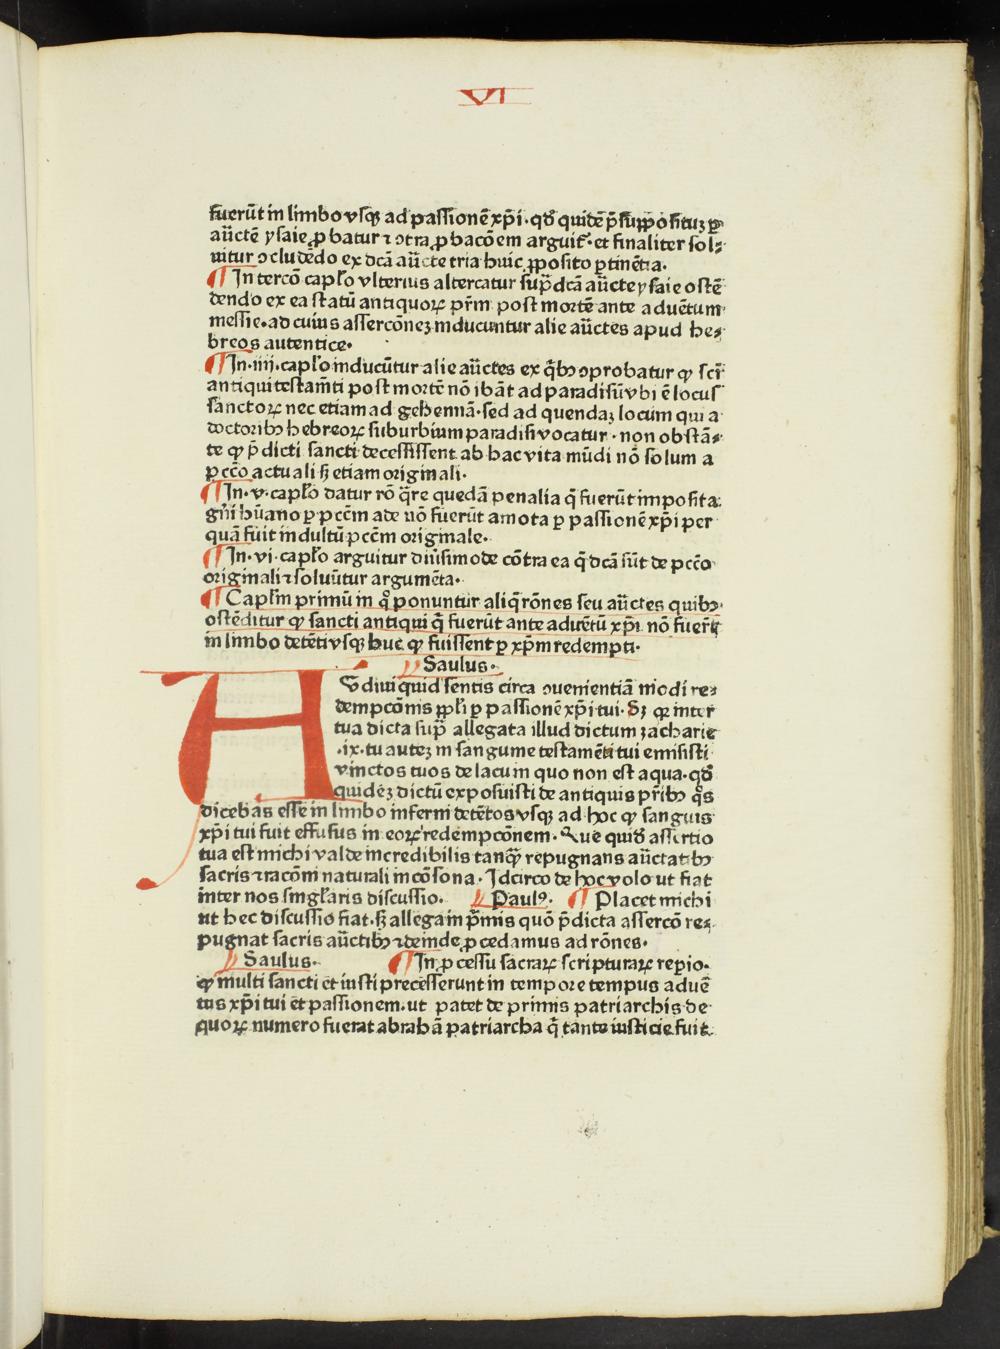 VI
fuerūt in limbo vsqꝫ ad passionē xp̄i · qd̄ quidē p̄suppositūꝫ ꝑ
auctē ysaie ꝓbatur ⁊ ↄtra ꝓbacōem arguit̄ · et finaliter sol⸗
uitur ↄcludēdo ex dcā aūcte tria huic ꝓposito ꝑtinētia ·
¶ In tercō caplo vlterius altercatur sup̄ dcā aūcte ysaie ostē
dendo ex ea statū antiquoꝝ pr̄m post mortē ante aduētum
messie · ad cuius assercōneꝫ inducuntur alie aūctes apud he⸗
breos autentice ·
¶ In · iiii · caplo inducūtur alie aūctes ex q̄bꝯ ↄprobatur ꝙ scī
antiqui testam̄ti post mortē nō ibāt ad paradisū vbi ē locus
sanctoꝝ nec etiam ad gehennā · sed ad quendaꝫ locum qui a
doctoribꝯ hebreoꝝ suburbium paradisi vocatur · non obstā⸗
te ꝙ p̄dicti sancti decessissent ab hac vita mūdi nō solum a
pccō actuali sꝫ etiam originali ·
¶ In · v · caplo datur rō q̄re quedā penalia q̄ fuerūt imposita
gn̄i hūano ꝑ pccm̄ ade nō fuerūt amota ꝑ passionē xp̄i per
quā fuit indultū pccm̄ originale ·
¶ In · vi · caplo arguitur diūsimode cōtra ea q̄ dcā sūt de pccō
originali ⁊ soluūtur argumēta ·
¶ Caplm primū in q̊ ponuntur aliq̄ rōnes seu aūctes quibꝯ
ostēditur ꝙ sancti antiqui q̄ fuerūt ante aduētū xp̄i nō fuerūt
in limbo detēti vsqꝫ huc ꝙ fuissent ꝑ xp̄m redempti ·
Saulus ·
AVdiui quid sentis circa ↄuenientiā modi re⸗
dempcōnis ppl̄i ꝑ passionē xp̄i tui · Sꝫ qꝛ inter
tua dicta sup̄ allegata illud dictum zacharie
· ix · tu auteꝫ in sanguine testamēti tui emisisti
vinctos tuos de lacu in quo non est aqua · qd̄
quidēꝫ dictū exposuisti de antiquis pr̄ibꝯ q̊s
dicebas esse in limbo inferni detētos vsqꝫ ad hoc ꝙ sanguis
xp̄i tui fuit effusus in eoꝝ redempcōnem · Que quid̄ assertio
tua est michi valde incredibilis tanqꝫ̄ repugnans aūctatibꝯ
sacris ⁊ racōni naturali incōsona · Idcirco de hoc volo ut fiat
inter nos singl̄aris discussio · Paulꝰ · ¶ Placet michi
ut hec discussio fiat · sꝫ allega in p̄mis quō p̄dicta assercō re⸗
pugnat sacris aūctibꝯ ⁊ deinde ꝓcedamus ad rōnes ·
Saulus · ¶ In ꝓcessu sacraꝝ scripturaꝝ reꝑio
ꝙ multi sancti et iusti precesserunt in tempore tempus aduē
tus xp̄i tui et passionem · ut patet de primis patriarchis de
quoꝝ numero fuerat abrahā patriarcha q̄ tante iusticie fuit